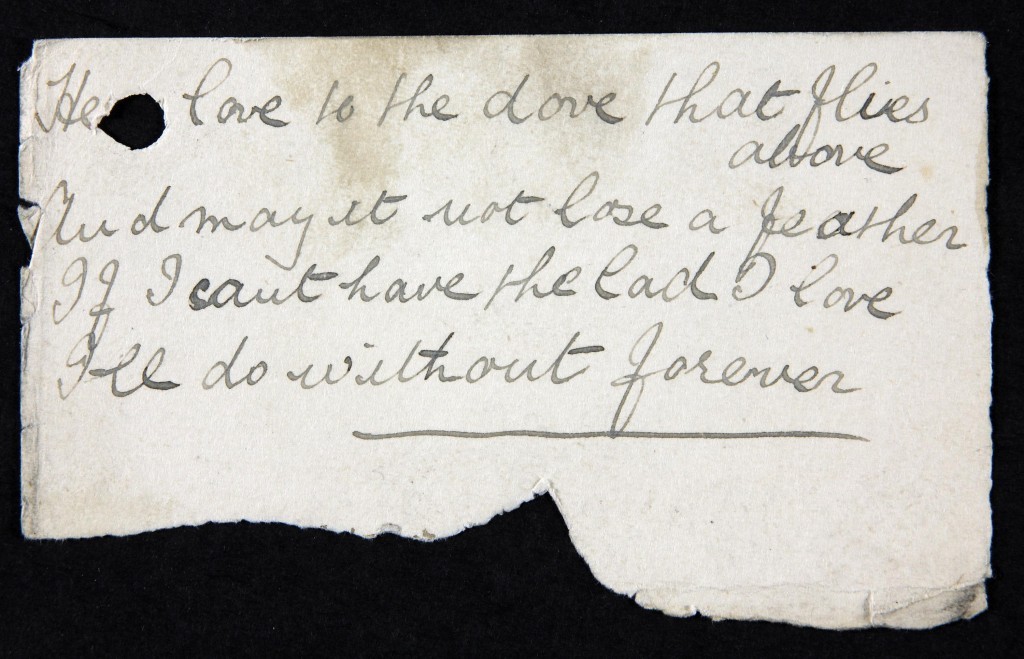 love to the dove that flies
above
And may it not lose a feather
If I cant have the lad I love
I'll do without forever